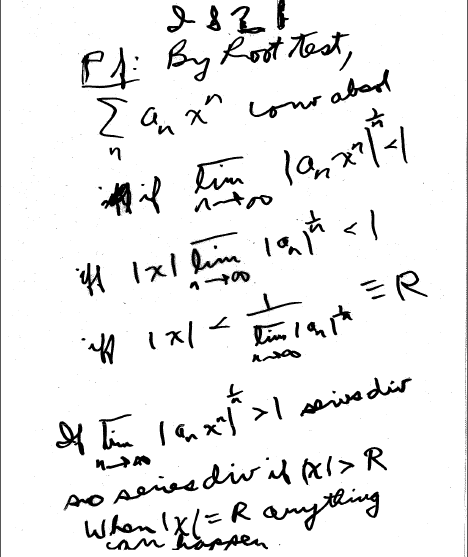 Pf: By Root test,
∑_n a_n x^n conv absol
if \overline{lim}_{n→∞} |a_n x^n|^{1/n} < 1
iff |x| \overline{lim}_{n→∞} |a_n|^{1/n} < 1
iff |x| < 1/(\overline{lim}_{n→∞} |a_n|^{1/n}) ≡ R
If \overline{lim}_{n→∞} |a_n x^n|^{1/n} > 1 series div
so series div if |x| > R
When |x| = R anything
can happen.